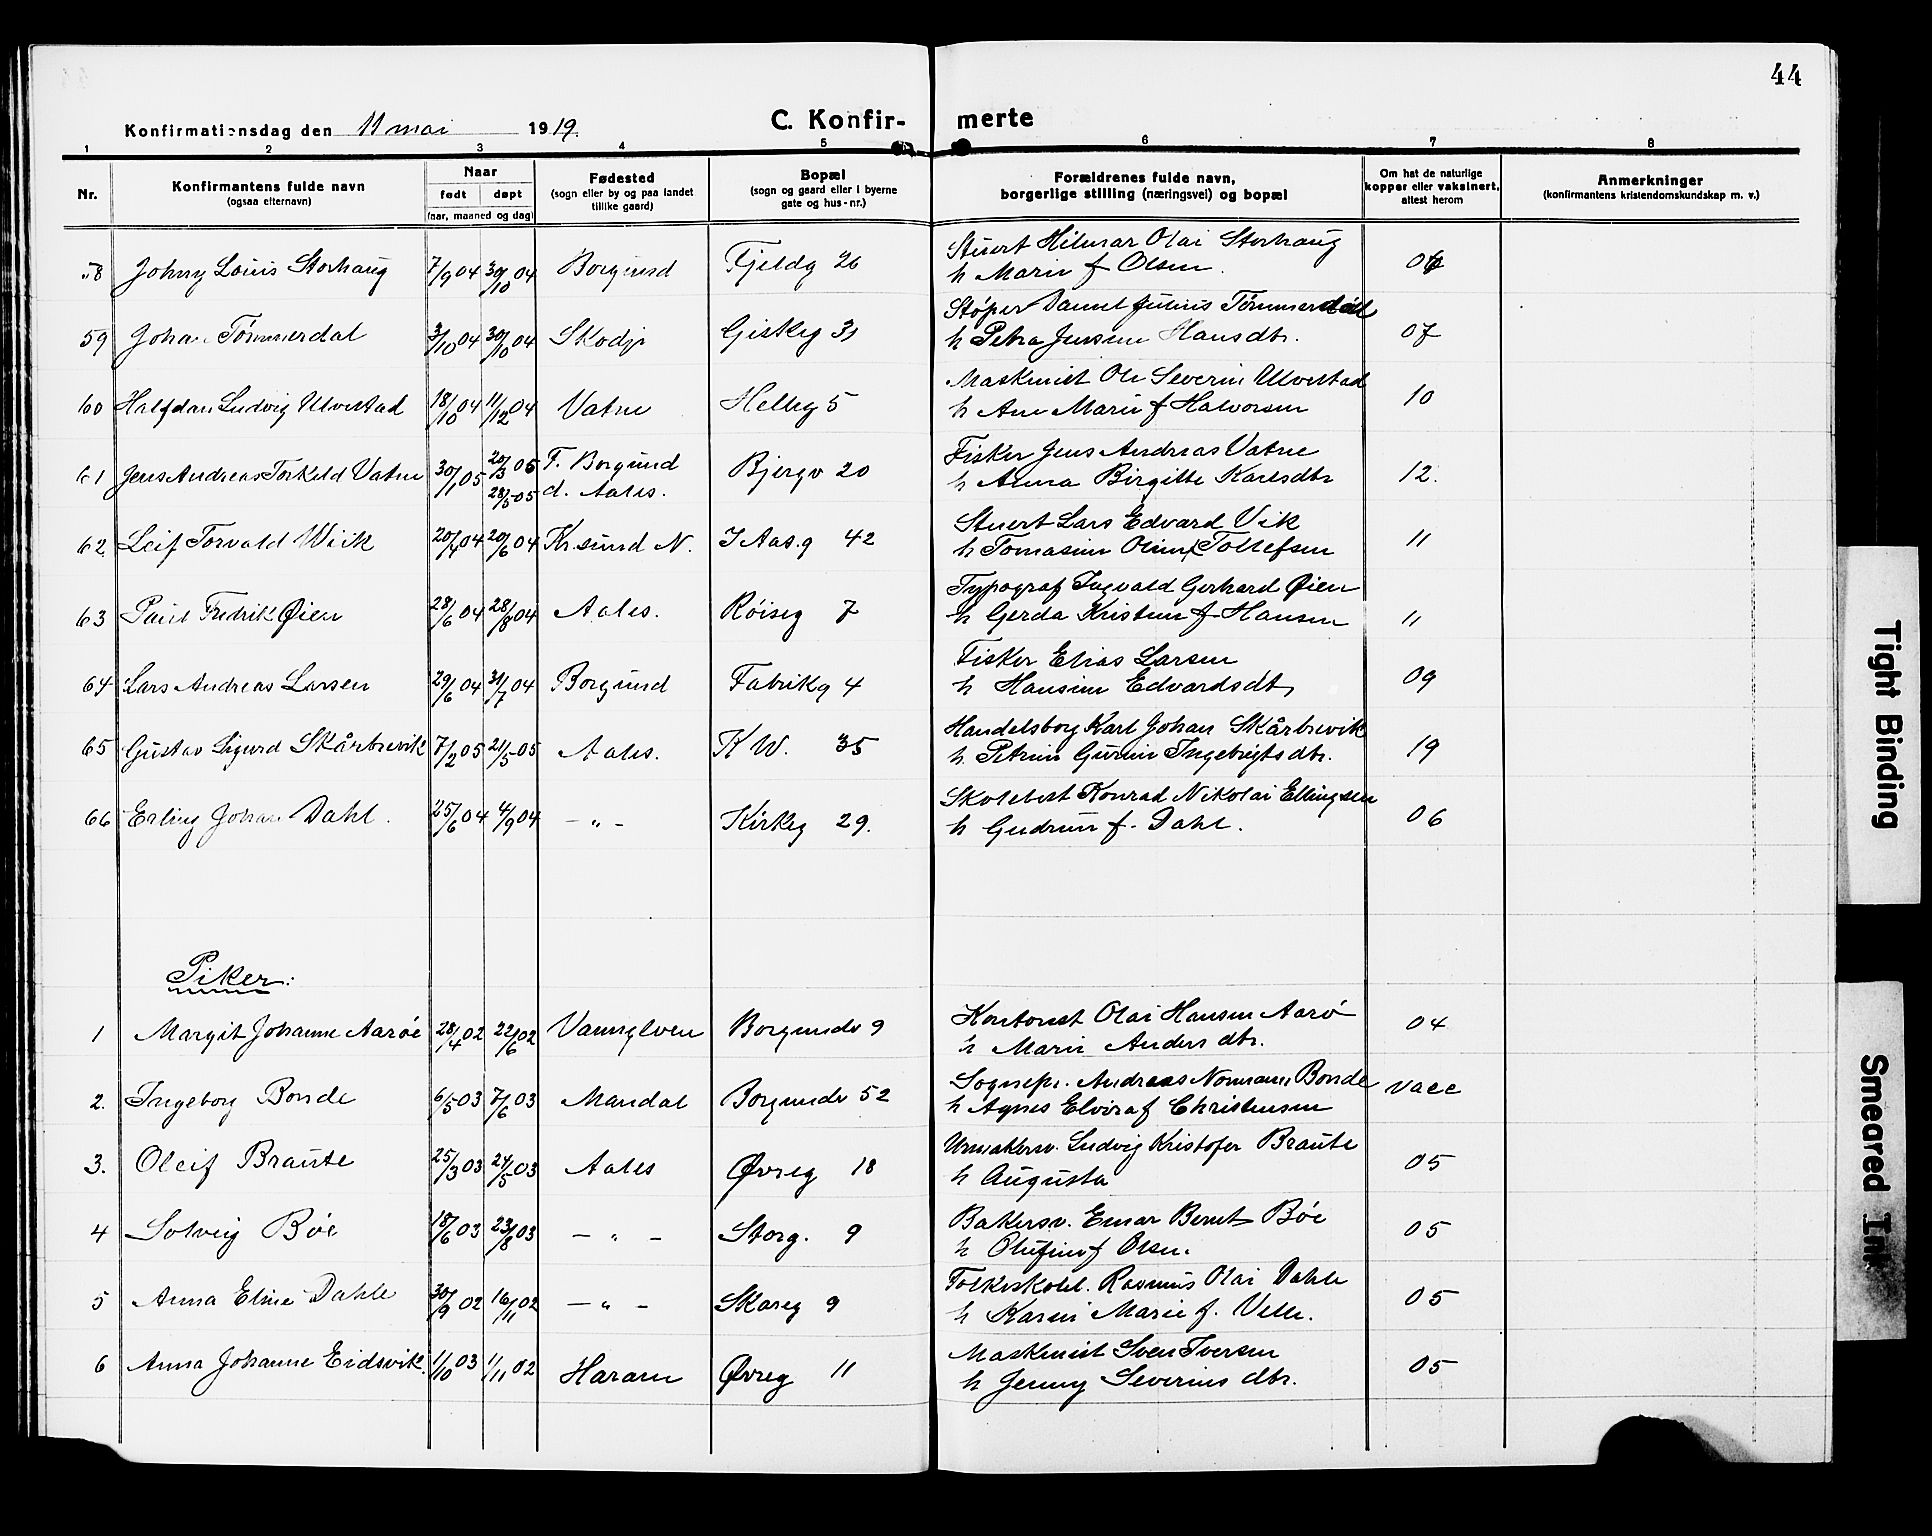 44
Konfirmationsdag den 11 mai 1919.
C. Konfirmerte
1 2 3 4 5 6 7 8
Nr. | Konfirmantens fulde navn (ogsaa efternavn) | Naar født døpt (aar, maaned og dag) | Fødested (sogn eller by og paa landet tillike gaard) | Bopæl (sogn og gaard eller i byerne gate og hus-nr.) | Forældrenes fulde navn, borgerlige stilling (næringsvei) og bopæl | Om hat de naturlige kopper eller vaksinert, attest herom | Anmerkninger (konfirmantens kristendomskundskap m. v.)
58 Johny Louis Storhaug 7/9 04 30/10 04 Borgund Fjeldg 26 Stuert Hilmar Olai Storhaug
h Marie f Olsen. 06
59 Johan Tömmerdal 3/10 04 30/10 04 Skodje Giskeg 31 Støper Daniel Julius Tömmerdal
h Petra Jensine Hansdtr. 07
60 Halfdan Ludvig Ulvestad 18/10 04 11/12 04 Vatne Helleg 5 Maskinist Ole Severin Ulvestad
h Ane Marie f Halvorsen 10
61 Jens Andreas Torkild Vatne 30/1 05 20/3 05 F. Borgund Bjergv 20 Fisker Jens Andreas Vatne
28/5-05 d. Aales. h Anna Birgitte Karlsdtr 12.
62 Leif Torvald Wiik 20/4 04 20/6 04 Kr.sund N. I Aas.g 42 Stuert Lars Edvard Vik
h Tomasine Oline f Tollefsen 11
63 Paul Fredrik Øien 28/6 04 28/8 04 Aales. Röiseg 7 Typograf Ingvald Gerhard Øien
h Gerda Kristine f Hansen 11
64 Lars Andreas Larsen 29/6 04 31/7 04 Borgund Fabrikg 4 Fisker Elias Larsen
h Hansine Edvardsdtr 09
65 Gustav Sigurd Skårbrevik 7/2 05 21/5-05 Aales. K W. 35 Handelsborg Karl Johan Skårbrevik
h. Petrine Gurine Ingebrigtsdtr. 19
66 Erling Johan Dahl. 25/6 04 4/9 04 - " - Kirkeg 29. Skolebest Konrad Nikolai Ellingsen
h Gudrun f. Dahl. 06
Piker:
1 Margit Johanne Aaröe 28/4 02 22/6 02 Vannylven Borgundv 9 Kontorist Olai Hansen Aarö
h Marie Andersdtr. 04
2. Ingeborg Bonde 6/5 03 7/6 03 Mandal Borgundv 52 Sognepr. Andreas Normann Bonde
h Agnes Elvira f Christensen vacc
3. Oleif Braute 25/3 03 24/5 03 Aales Øvreg 18 Urmakersv. Ludvig Kristofer Braute
h Augusta 05
4 Solveig Böe 18/6 03 23/8 03 - " - Storg. 9 Bakersv. Einar Bernt Böe
h Olufine f Olsen. 05
5 Anna Eline Dahle 30/9 02 16/11 02 - " - Skareg 9 Folkeskolel. Rasmus Olai Dahle
h Karen Marie f. Velle. 05
6 Anna Johanne Eidsvik. 1/10 03 1/11 02 Haram Øvreg 11 Maskinist Sven Iversen
h Jenny Severinsdtr. 05
Tight Binding
Smeared Ink